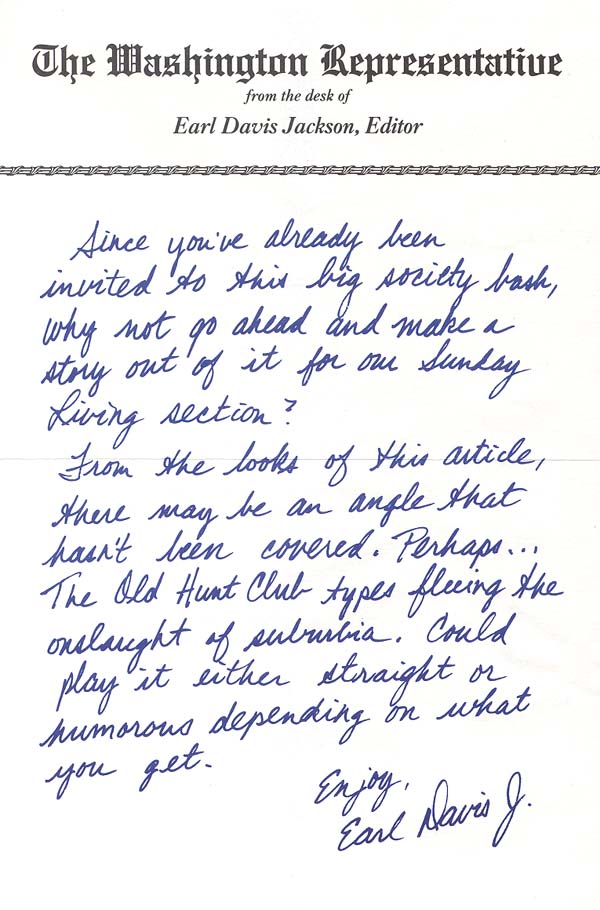 The Washington Representative
from the desk of
Earl Davis Jackson, Editor
Since you've already been
invited to this big society bash,
why not go ahead and make a
story out of it for our Sunday
Living section?
From the looks of this article,
there may be an angle that
hasn't been covered. Perhaps...
The Old Hunt Club types fleeing the
onslaught of suburbia. Could
play it either straight or
humorous depending on what
you get.
Enjoy,
Earl Davis J.